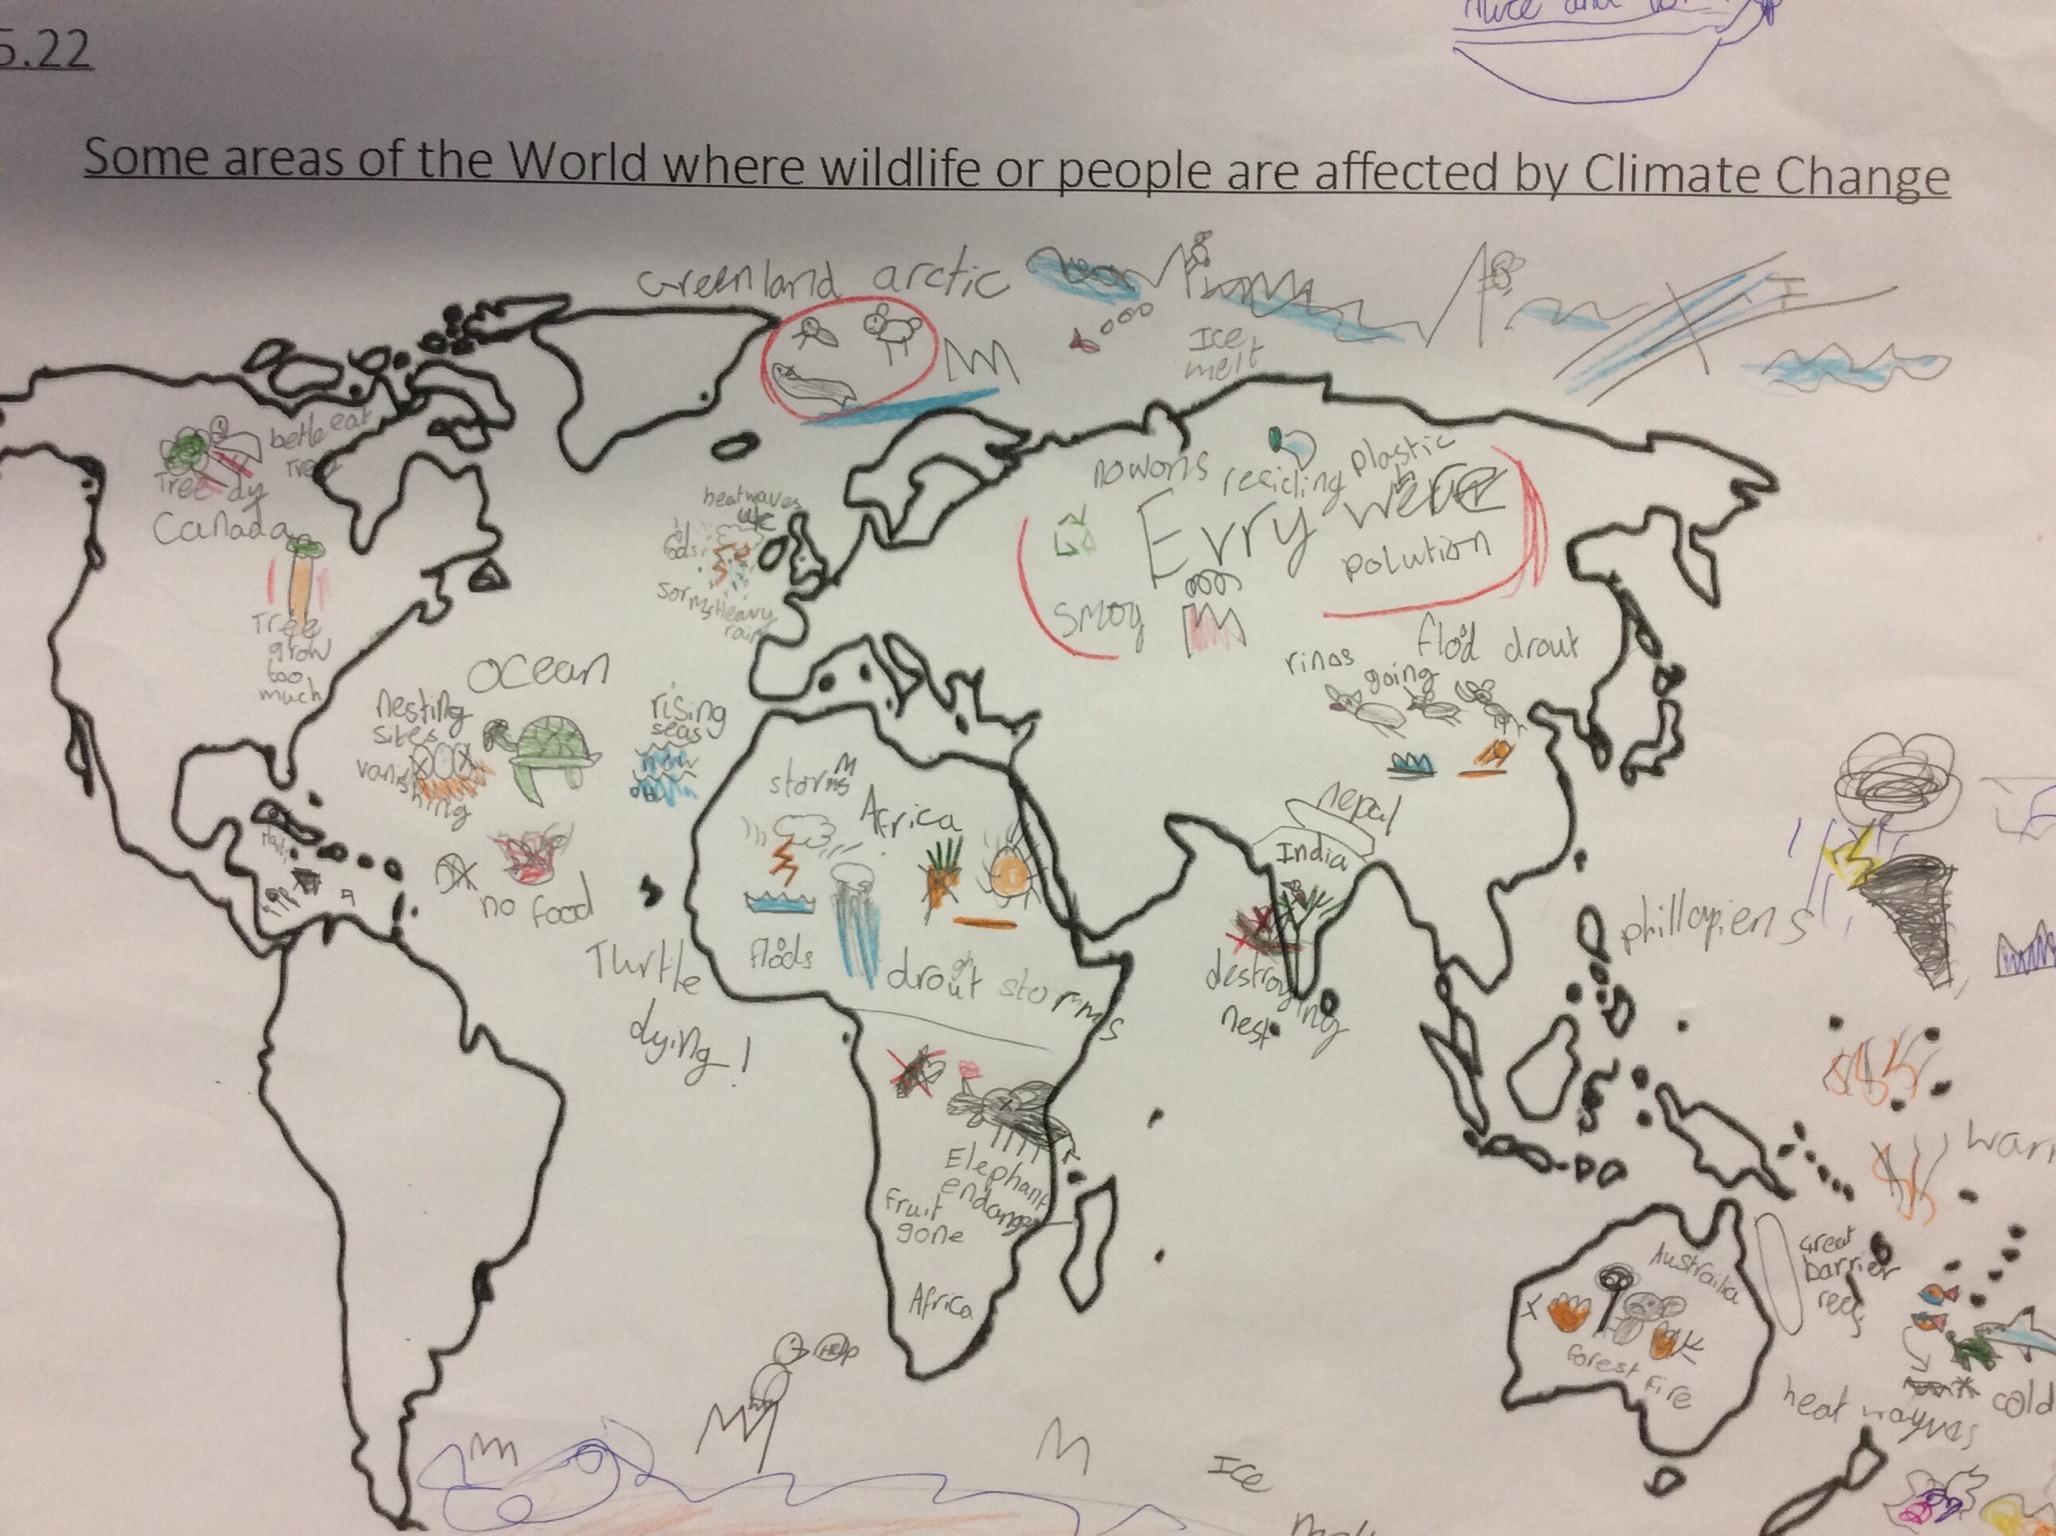 5.22
Some areas of the World where wildlife or people are affected by Climate Change
Greenland arctic
Ice
melt
betle eat
Tree
Tree dy
Canada
Tree
grow
too
much
heatwaves
uk
rain
Heavy
noworis reciding plastic
Evry were
polution
smog
flod drout
rinos
going
ocean
nesting
sites
vanishing
rising
seas
no food
Thurtle
dying!
storms
Africa
floods
drout storms
nepal
India
destroying
nest
phillopiens
Elephant
endanger
fruit
gone
Africa
Australia
forest fire
Great
barrier
reef
heat wayves
cold
Help
Ice